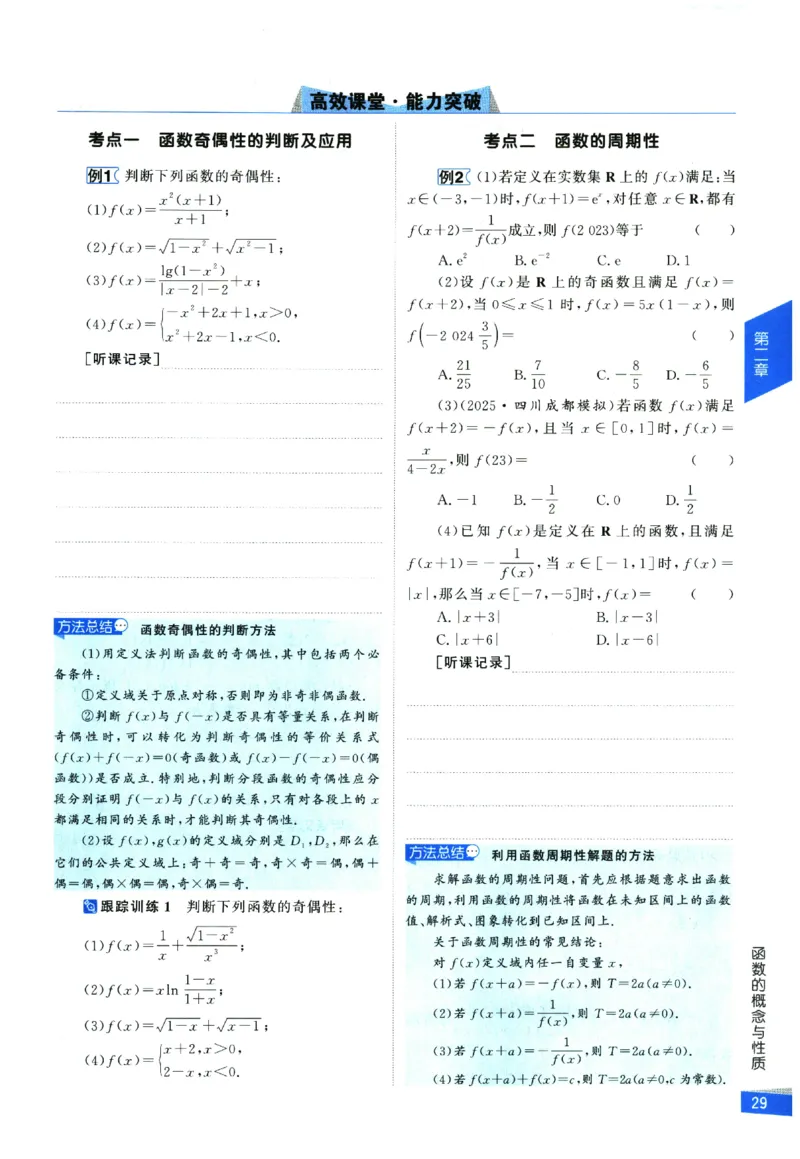 高效课堂·能力突破
考点一 函数奇偶性的判断及应用
例1 判断下列函数的奇偶性:
(1)f(x)=\frac{x²(x+1)}{x+1};
(2)f(x)=√(1-x²)+√(x²-1);
(3)f(x)=\frac{lg(1-x²)}{|x-2|-2}+x;
(4)f(x)={-x²+2x+1,x>0,
x²+2x-1,x<0.
[听课记录]
方法总结 函数奇偶性的判断方法
(1)用定义法判断函数的奇偶性,其中包括两个必
备条件:
①定义域关于原点对称,否则即为非奇非偶函数.
②判断 f(x)与 f(-x)是否具有等量关系,在判断
奇偶性时,可以转化为判断奇偶性的等价关系式
(f(x)+f(-x)=0(奇函数)或 f(x)-f(-x)=0(偶
函数))是否成立.特别地,判断分段函数的奇偶性应分
段分别证明 f(-x)与 f(x)的关系,只有对各段上的 x
都满足相同的关系时,才能判断其奇偶性.
(2)设 f(x),g(x)的定义域分别是 D₁,D₂,那么在
它们的公共定义域上:奇+奇=奇,奇×奇=偶,偶+
偶=偶,偶×偶=偶,奇×偶=奇.
跟踪训练 1 判断下列函数的奇偶性:
(1)f(x)=\frac{1}{x}+\frac{√(1-x²)}{x³};
(2)f(x)=xln \frac{1-x}{1+x};
(3)f(x)=√(1-x)+√(x-1);
(4)f(x)={x+2,x>0,
2-x,x<0.
考点二 函数的周期性
例2 (1)若定义在实数集 R 上的 f(x)满足:当
x∈(-3,-1)时,f(x+1)=eˣ,对任意 x∈R,都有
f(x+2)=\frac{1}{f(x)}成立,则 f(2 023)等于 ( )
A.e² B.e⁻² C.e D.1
(2)设 f(x)是 R 上的奇函数且满足 f(x)=
f(x+2),当 0≤x≤1 时,f(x)=5x(1-x),则
f(-2 024\frac{3}{5})= ( )
A.\frac{21}{25} B.\frac{7}{10} C.-\frac{8}{5} D.-\frac{6}{5}
(3)(2025·四川成都模拟)若函数 f(x)满足
f(x+2)=-f(x),且当 x∈[0,1]时,f(x)=
\frac{x}{4-2x},则 f(23)= ( )
A.-1 B.-\frac{1}{2} C.0 D.\frac{1}{2}
(4)已知 f(x)是定义在 R 上的函数,且满足
f(x+1)=-\frac{1}{f(x)},当 x∈[-1,1]时,f(x)=
|x|,那么当 x∈[-7,-5]时,f(x)= ( )
A.|x+3| B.|x-3|
C.|x+6| D.|x-6|
[听课记录]
方法总结 利用函数周期性解题的方法
求解函数的周期性问题,首先应根据题意求出函数
的周期,利用函数的周期性将函数在未知区间上的函数
值、解析式、图象转化到已知区间上.
关于函数周期性的常见结论:
对 f(x)定义域内任一自变量 x,
(1)若 f(x+a)=-f(x),则 T=2a(a≠0).
(2)若 f(x+a)=\frac{1}{f(x)},则 T=2a(a≠0).
(3)若 f(x+a)=-\frac{1}{f(x)},则 T=2a(a≠0).
(4)若 f(x+a)+f(x)=c,则 T=2a(a≠0,c 为常数).
第二章
函数的概念与性质
29